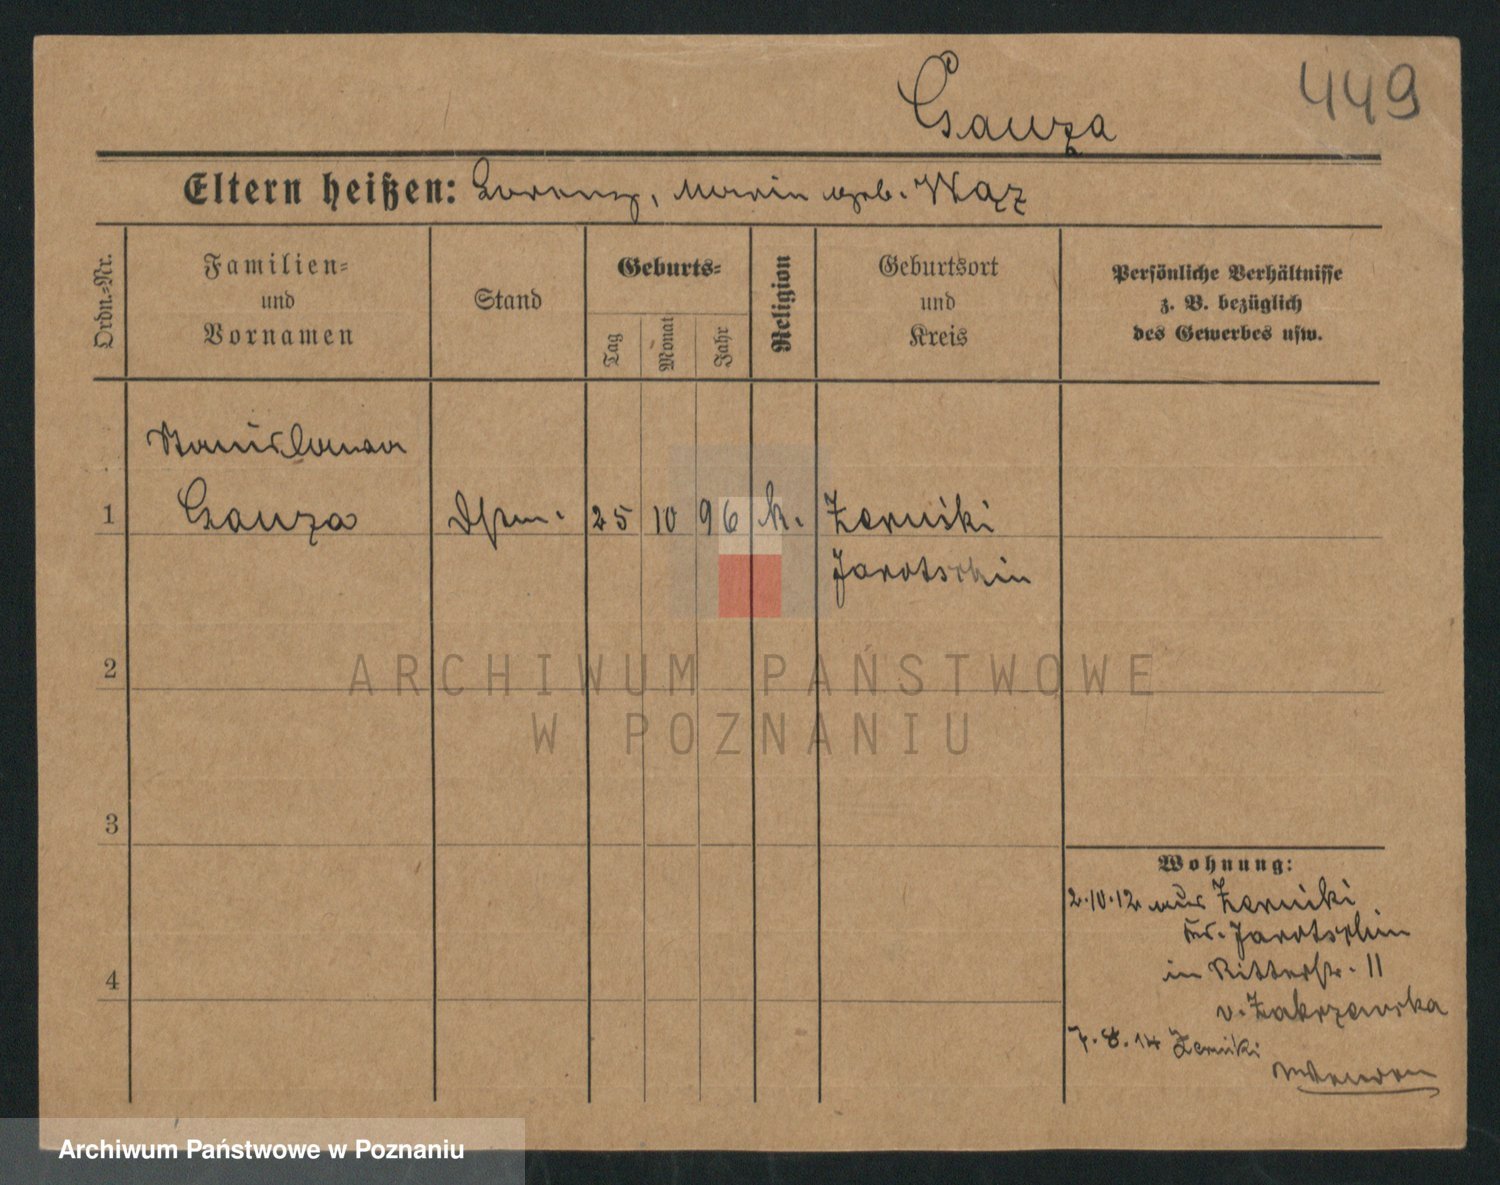 449
Ganza
Eltern heißen: Lorenz, Marie geb. Waz
Ordn.-Nr.
Familien-
und
Vornamen
Stand
Geburts-
Tag
Monat
Jahr
Religion
Geburtsort
und
Kreis
Persönliche Verhältnisse
z. B. bezüglich
des Gewerbes usw.
Stanislawa
1 Ganza 25 10 96 k. Zerniki
Jarotschin
2
3
4
Wohnung:
2.10.12 aus Zerniki
Kr. Jarotschin
in Ritterstr. 11
v. Zakrzewska
7.8.14 Zerniki
ARCHIWUM PAŃSTWOWE
W POZNANIU
Archiwum Państwowe w Poznaniu